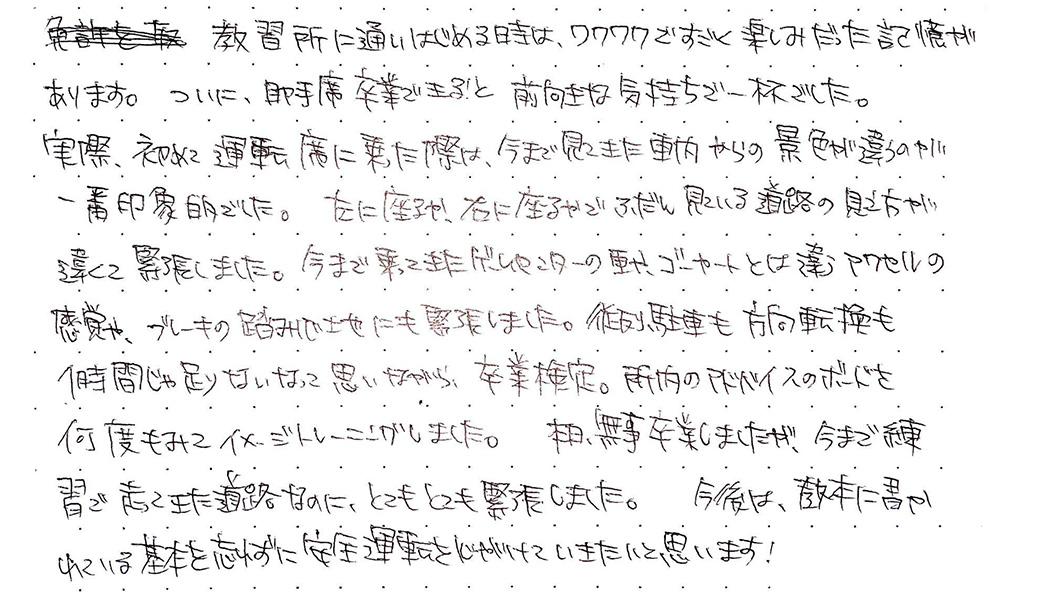 教習所に通いはじめる時は、ワクワクですごく楽しみだった記憶が
あります。ついに、助手席卒業できる!と前向きな気持ちで一杯でした。
実際、初めて運転席に乗った際は、今まで見てきた車内からの景色が違うのが
一番印象的でした。左に座るか、右に座るかでふだん見ている道路の見え方が
違くて緊張しました。今まで乗ってきたゲームセンターの車や、ゴーカートとは違うアクセルの
感覚や、ブレーキの踏み心地にも緊張しました。縦列駐車も方向転換も
1時間じゃ足りないなって思いながら、卒業検定。所内のアドバイスのボードを
何度もみてイメージトレーニングしました。無事卒業しましたが、今まで練
習で走ってきた道路なのに、とてもとても緊張しました。今後は、教本に書か
れている基本を忘れずに安全運転を心がけていきたいと思います!